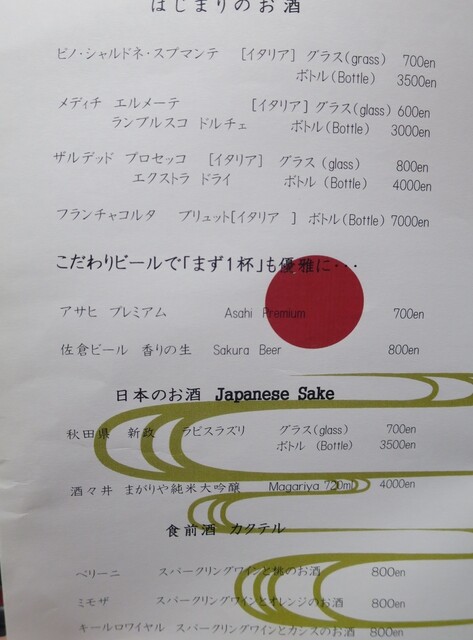 はじまりのお酒
ピノ・シャルドネ・スプマンテ [イタリア] グラス(grass) 700en
ボトル(Bottle) 3500en
メディチ エルメーテ [イタリア] グラス(glass) 600en
ランブルスコ ドルチェ ボトル(Bottle) 3000en
ザルデッド プロセッコ [イタリア] グラス(glass) 800en
エクストラ ドライ ボトル(Bottle) 4000en
フランチャコルタ ブリュット[イタリア ] ボトル(Bottle) 7000en
こだわりビールで「まず1杯」も優雅に・・・
アサヒ プレミアム Asahi Premium 700en
佐倉ビール 香りの生 Sakura Beer 800en
日本のお酒 Japanese Sake
秋田県 新政 ラピスラズリ グラス(glass) 700en
ボトル (Bottle) 3500en
酒々井 まがりや純米大吟醸 Magariya 720ml 4000en
食前酒 カクテル
ベリーニ スパークリングワインと桃のお酒 800en
ミモザ スパークリングワインとオレンジのお酒 800en
キールロワイヤル スパークリングワインとカシスのお酒 800en